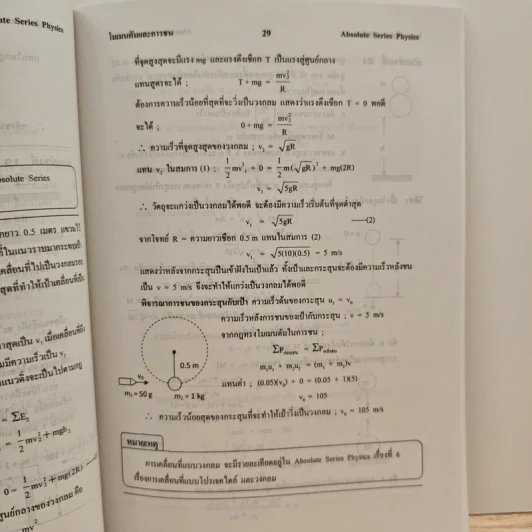 โมเมนตัมและการชน 29 Absolute Series Physics
ที่จุดสูงสุดจะมีแรง mg และแรงดึงเชือก T เป็นแรงสู่ศูนย์กลาง
แทนสูตรจะได้ ; T + mg = mv₂²/R
ต้องการความเร็วน้อยที่สุดที่จะวิ่งเป็นวงกลม แสดงว่าแรงดึงเชือก T = 0 พอดี
จะได้ ; 0 + mg = mv₂²/R
∴ ความเร็วที่จุดสูงสุดของวงกลม ; v₂ = √gR
แทน v₂ ในสมการ (1) ; 1/2 mv₁² + 0 = 1/2 m(√gR)² + mg(2R)
v₁ = √5gR
∴ วัตถุจะแกว่งเป็นวงกลมได้พอดี จะต้องมีความเร็วเริ่มต้นที่จุดต่ำสุด
v₁ = √5gR ——(2)
จากโจทย์ R = ความยาวเชือก 0.5 m แทนในสมการ (2)
v₁ = √5(10)(0.5) = 5 m/s
แสดงว่าหลังจากกระสุนปืนเข้าฝังในเป้าแล้ว ทั้งเป้าและกระสุนจะต้องมีความเร็วหลังชน
เป็น v = 5 m/s จึงจะทำให้แกว่งเป็นวงกลมได้พอดี
พิจารณาการชนของกระสุนกับเป้า ความเร็วต้นของกระสุน u₁ = v₀
ความเร็วหลังการชนของเป้ากับกระสุน ; v = 5 m/s
จากกฎทรงโมเมนตัมในการชน ;
ΣPก่อนชน = ΣPหลังชน
m₁u₁ + m₂u₂ = (m₁ + m₂)v
แทนค่า ; (0.05)(v₀) + 0 = (0.05 + 1)(5)
v₀ = 105
0.5 m
v₀
m₁ = 50 g m₂ = 1 kg
∴ ความเร็วน้อยสุดของกระสุนที่จะทำให้เป้าวิ่งเป็นวงกลม ; v₀ = 105 m/s
หมายเหตุ
การเคลื่อนที่แบบวงกลม จะมีรายละเอียดอยู่ใน Absolute Series Physics เรื่องที่ 6
เรื่องการเคลื่อนที่แบบโปรเจคไตล์ และวงกลม
Absolute Series Phys
solute Series
ยาว 0.5 เมตร
= ΣE₂
= 1/2 mv₂² + mgh₂
0 = 1/2 mv₂² + mg(2R)